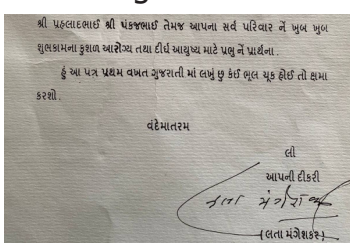 શ્રી પ્રહલાદભાઈ શ્રી પંકજભાઈ તેમજ આપના સર્વ પરિવાર ને ખુબ ખુબ
શુભકામના કુશળ આરોગ્ય તથા દીર્ઘ આયુષ્ય માટે પ્રભુ ને પ્રાર્થના.
હું આ પત્ર પ્રથમ વખત ગુજરાતી માં લખું છુ કંઈ ભૂલ ચૂક હોઈ તો ક્ષમા
કરશો.
વંદેમાતરમ
લી
આપની દીકરી
लता मंगेशकर
(લતા મંગેશકર)